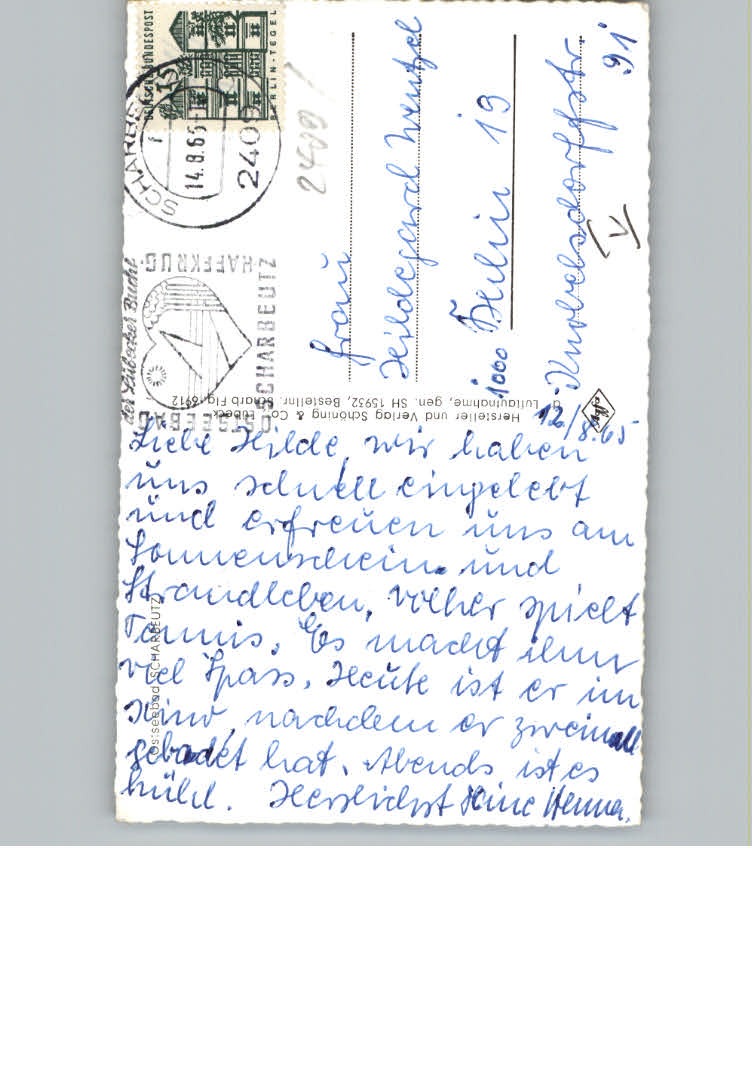 DEUTSCHE BUNDESPOST
15
BERLIN-TEGEL
SCHARBEUTZ
14.8.65
2409
2409
OSTSEEBAD
SCHARBEUTZ
HAFFKRUG
der Lübecker Bucht
Frau
Hildegard Wentzel
1000 Berlin 19
Knobelsdorffstr.
91
Hersteller und Verlag Schöning & Co., Lübeck
Luftaufnahme, gen. SH 15932, Bestellnr. Scharb Flg. 6912
Agfa
Ostseebad SCHARBEUTZ
12/8.65
Liebe Hilde, wir haben
uns schnell eingelebt
und erfreuen uns am
Sonnenschein und
Strandleben. Volker spielt
Tennis. Es macht ihm
viel Spass. Heute ist er im
Kino, nachdem er zweimal
gebadet hat. Abends ist es
kühl. Herzlichst Deine Henna.